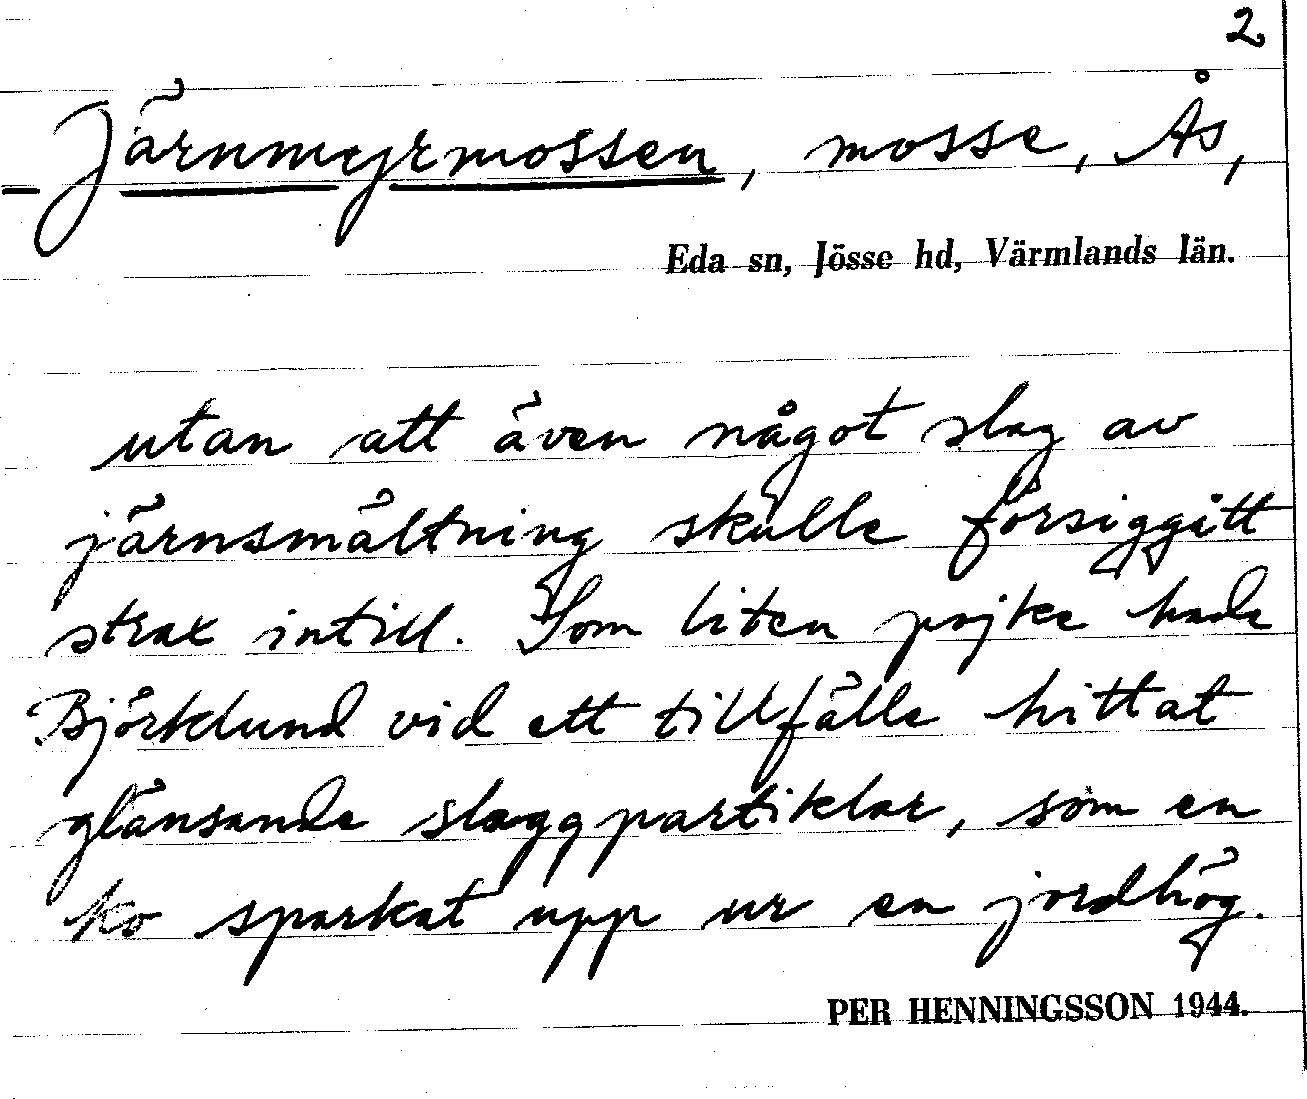 2
Järnmyrmossen, mosse, Ås,
Eda sn, Jösse hd, Värmlands län.
utan att även något slag av
järnsmältning skulle försiggått
strax intill. Som liten pojke hade
Björklund vid ett tillfälle hittat
glänsande slaggpartiklar, som en
ko sparkat upp ur en jordhög.
PER HENNINGSSON 1944.